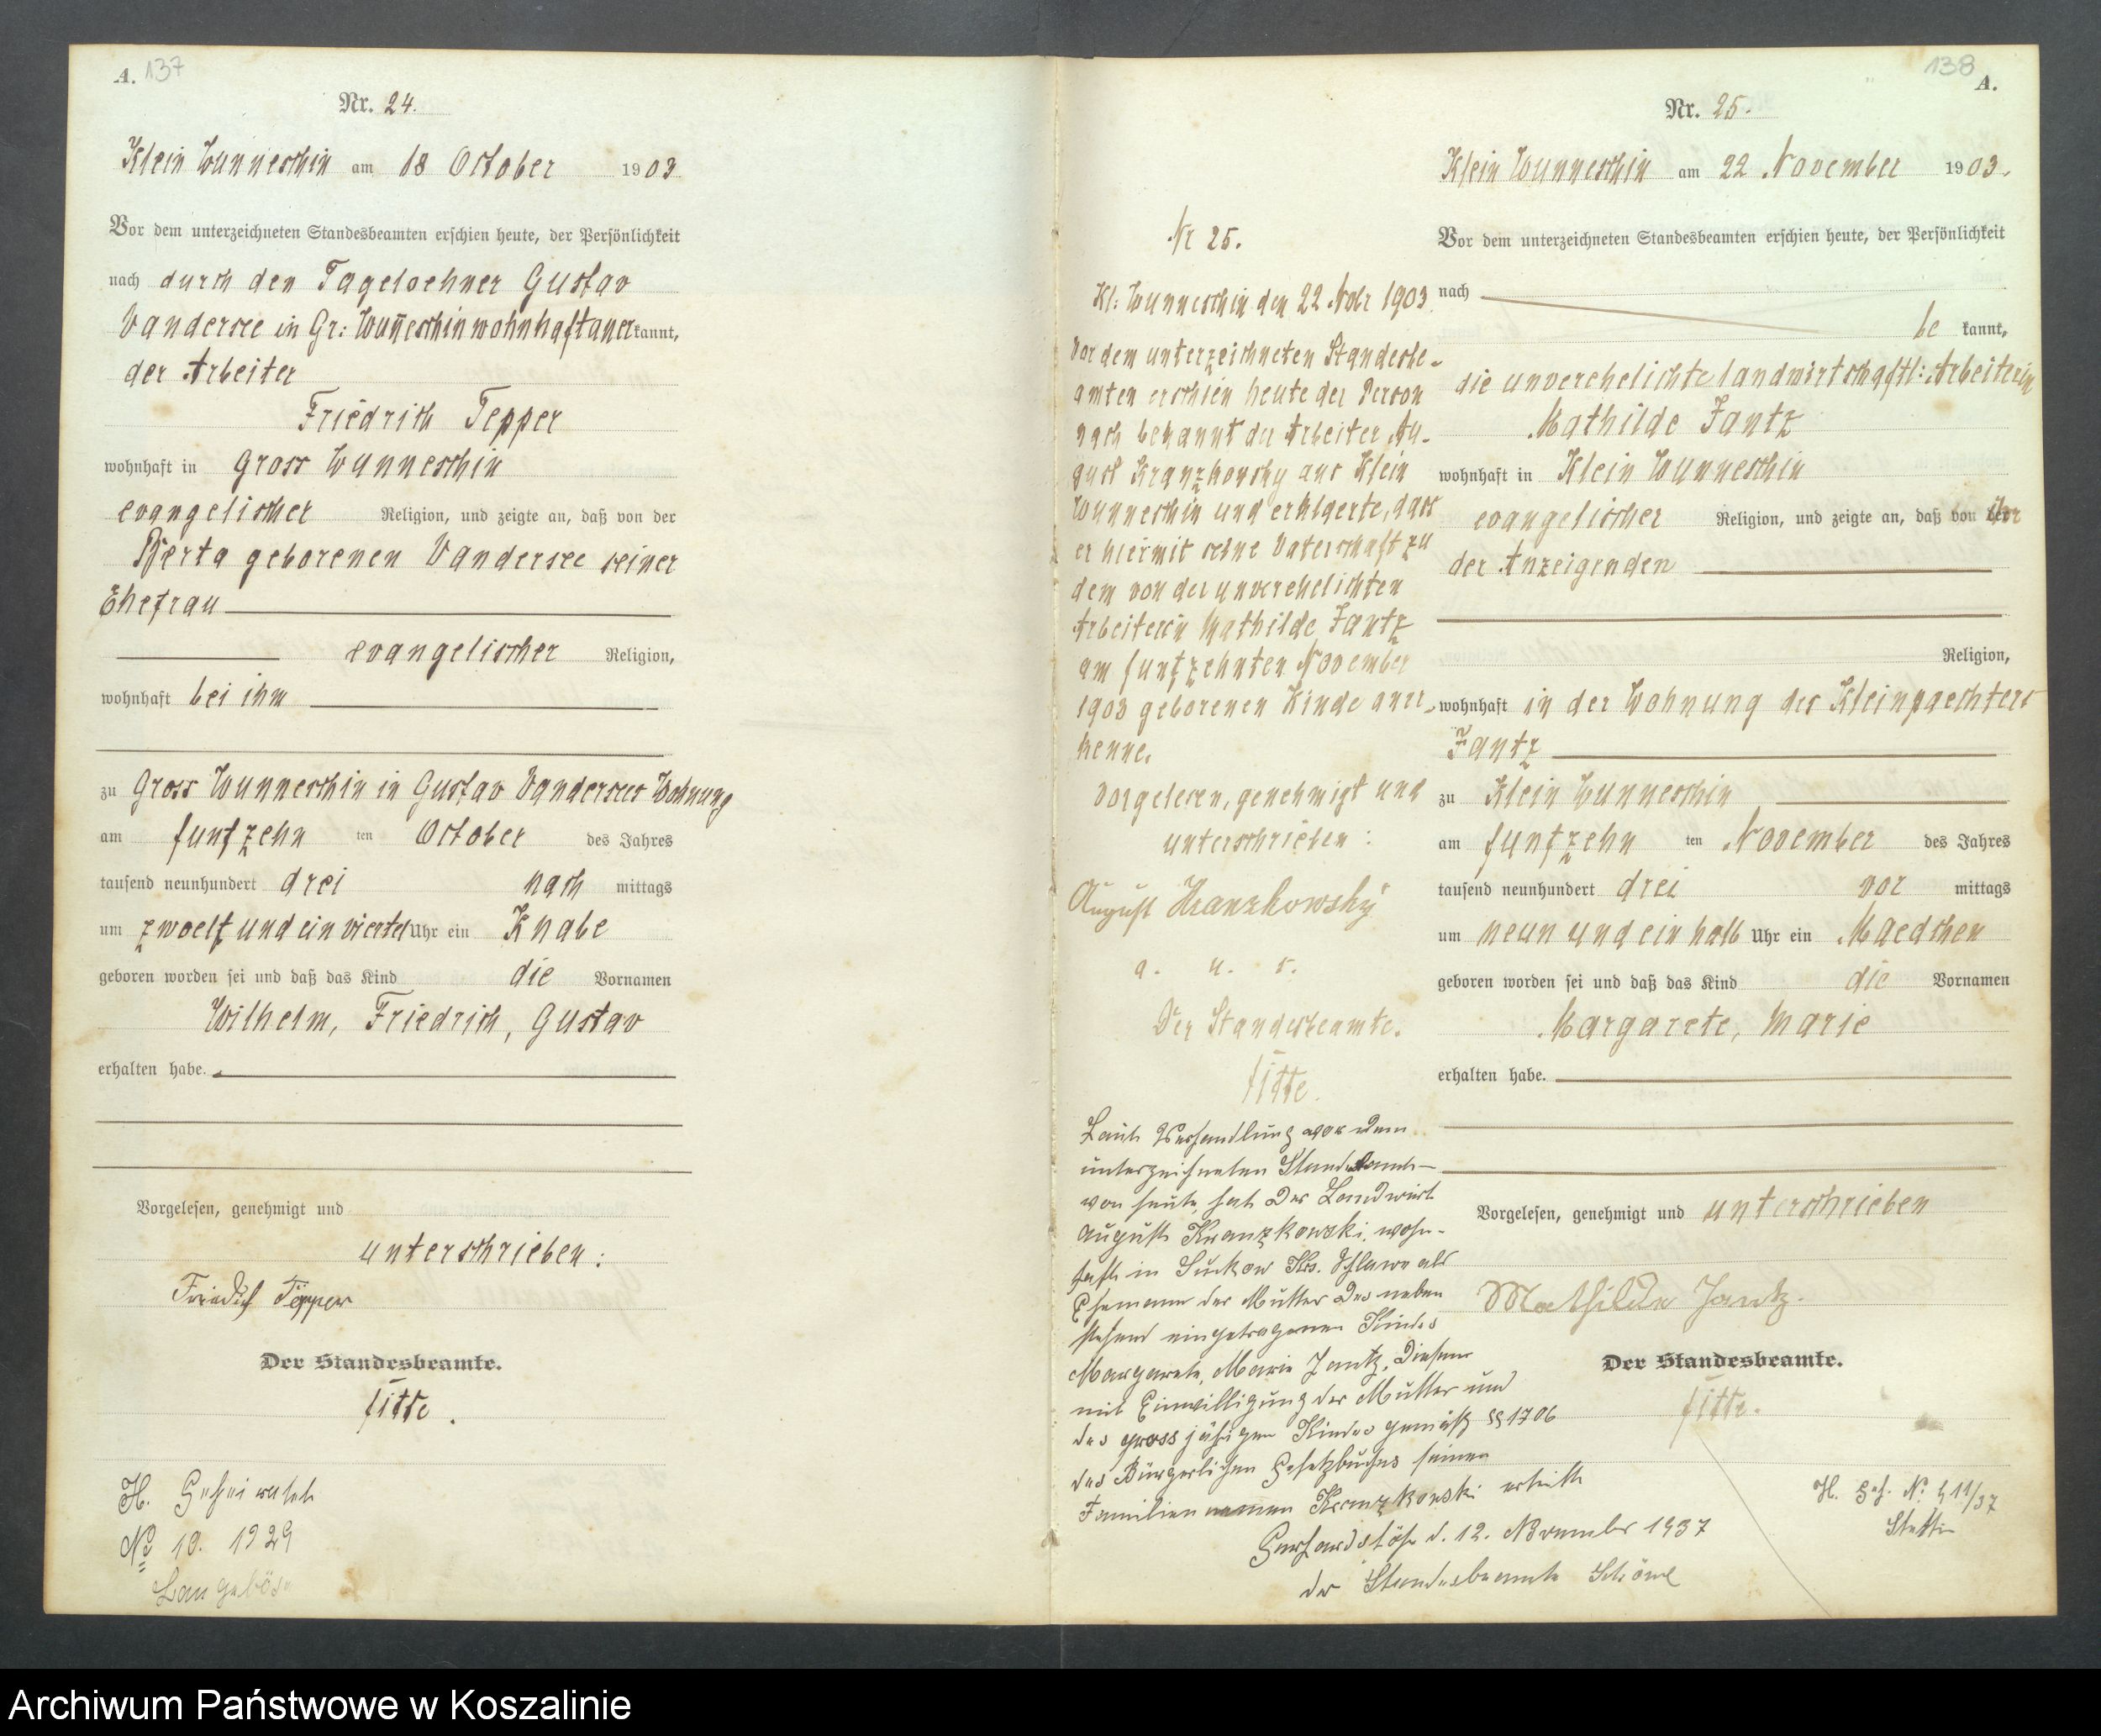 A. 137
Nr. 24.
Klein Wunneschin am 18 October 1903
Vor dem unterzeichneten Standesbeamten erschien heute, der Persönlichkeit
nach durch den Tageloehner Gustav
Vandersee in Gr: Wunneschin wohnhaft anerkannt,
der Arbeiter
Friedrich Tepper
wohnhaft in Gross Wunneschin
evangelischer Religion, und zeigte an, daß von der
Berta geborenen Vandersee seiner
Ehefrau
evangelischer Religion,
wohnhaft bei ihm
zu Gross Wunneschin in Gustav Vandersees Wohnung
am funfzehn ten October des Jahres
tausend neunhundert drei nach mittags
um zwoelf und ein viertel Uhr ein Knabe
geboren worden sei und daß das Kind die Vornamen
Wilhelm, Friedrich, Gustav
erhalten habe.
Vorgelesen, genehmigt und
unterschrieben:
Friedrich Tepper
Der Standesbeamte.
Titte.
H. Geheiratet
No 10. 1929
Langeböse
138 A.
Nr. 25.
Klein Wunneschin am 22 November 1903.
Vor dem unterzeichneten Standesbeamten erschien heute, der Persönlichkeit
nach
be kannt,
die unverehelichte landwirtschaftl: Arbeiterin
Mathilde Jantz
wohnhaft in Klein Wunneschin
evangelischer Religion, und zeigte an, daß von ihr
der Anzeigenden
Religion,
wohnhaft in der Wohnung des Kleinpaechters
Jantz
zu Klein Wunneschin
am funfzehn ten November des Jahres
tausend neunhundert drei vor mittags
um neun und ein halb Uhr ein Maedchen
geboren worden sei und daß das Kind die Vornamen
Margarete, Marie
erhalten habe.
Vorgelesen, genehmigt und unterschrieben
Mathilde Jantz.
Der Standesbeamte.
Titte.
H. Gesch. Nr. 411/37
Stettin
Nr 25.
Kl: Wunneschin den 22 Nobr 1903.
Vor dem unterzeichneten Standesbe-
amten erschien heute der Person
nach bekannt der Arbeiter Au-
gust Kranzkowsky aus Klein
Wunneschin und erklaerte, dass
er hiermit seine Vaterschaft zu
dem von der unverehelichten
Arbeiterin Mathilde Jantz
am funfzehnten November
1903 geborenen Kinde aner-
kenne.
Vorgelesen, genehmigt und
unterschrieben:
August Kranzkowsky
a. u. s.
Der Standesbeamte.
Titte.
Laut Verhandlung vor dem
unterzeichneten Standesamt
von heute hat der Landwirt
August Kranzkowski, wohn-
haft in Suckow Krs. Schlawe als
Ehemann der Mutter des neben
stehend eingetragenen Kindes
Margarete, Marie Jantz, diesem
mit Einwilligung der Mutter und
des grossjährigen Kindes gemäß §§ 1706
des Bürgerlichen Gesetzbuches seinen
Familiennamen Kranzkowski erteilt
Gerhardshöhe d. 12. November 1937
der Standesbeamte
Archiwum Państwowe w Koszalinie